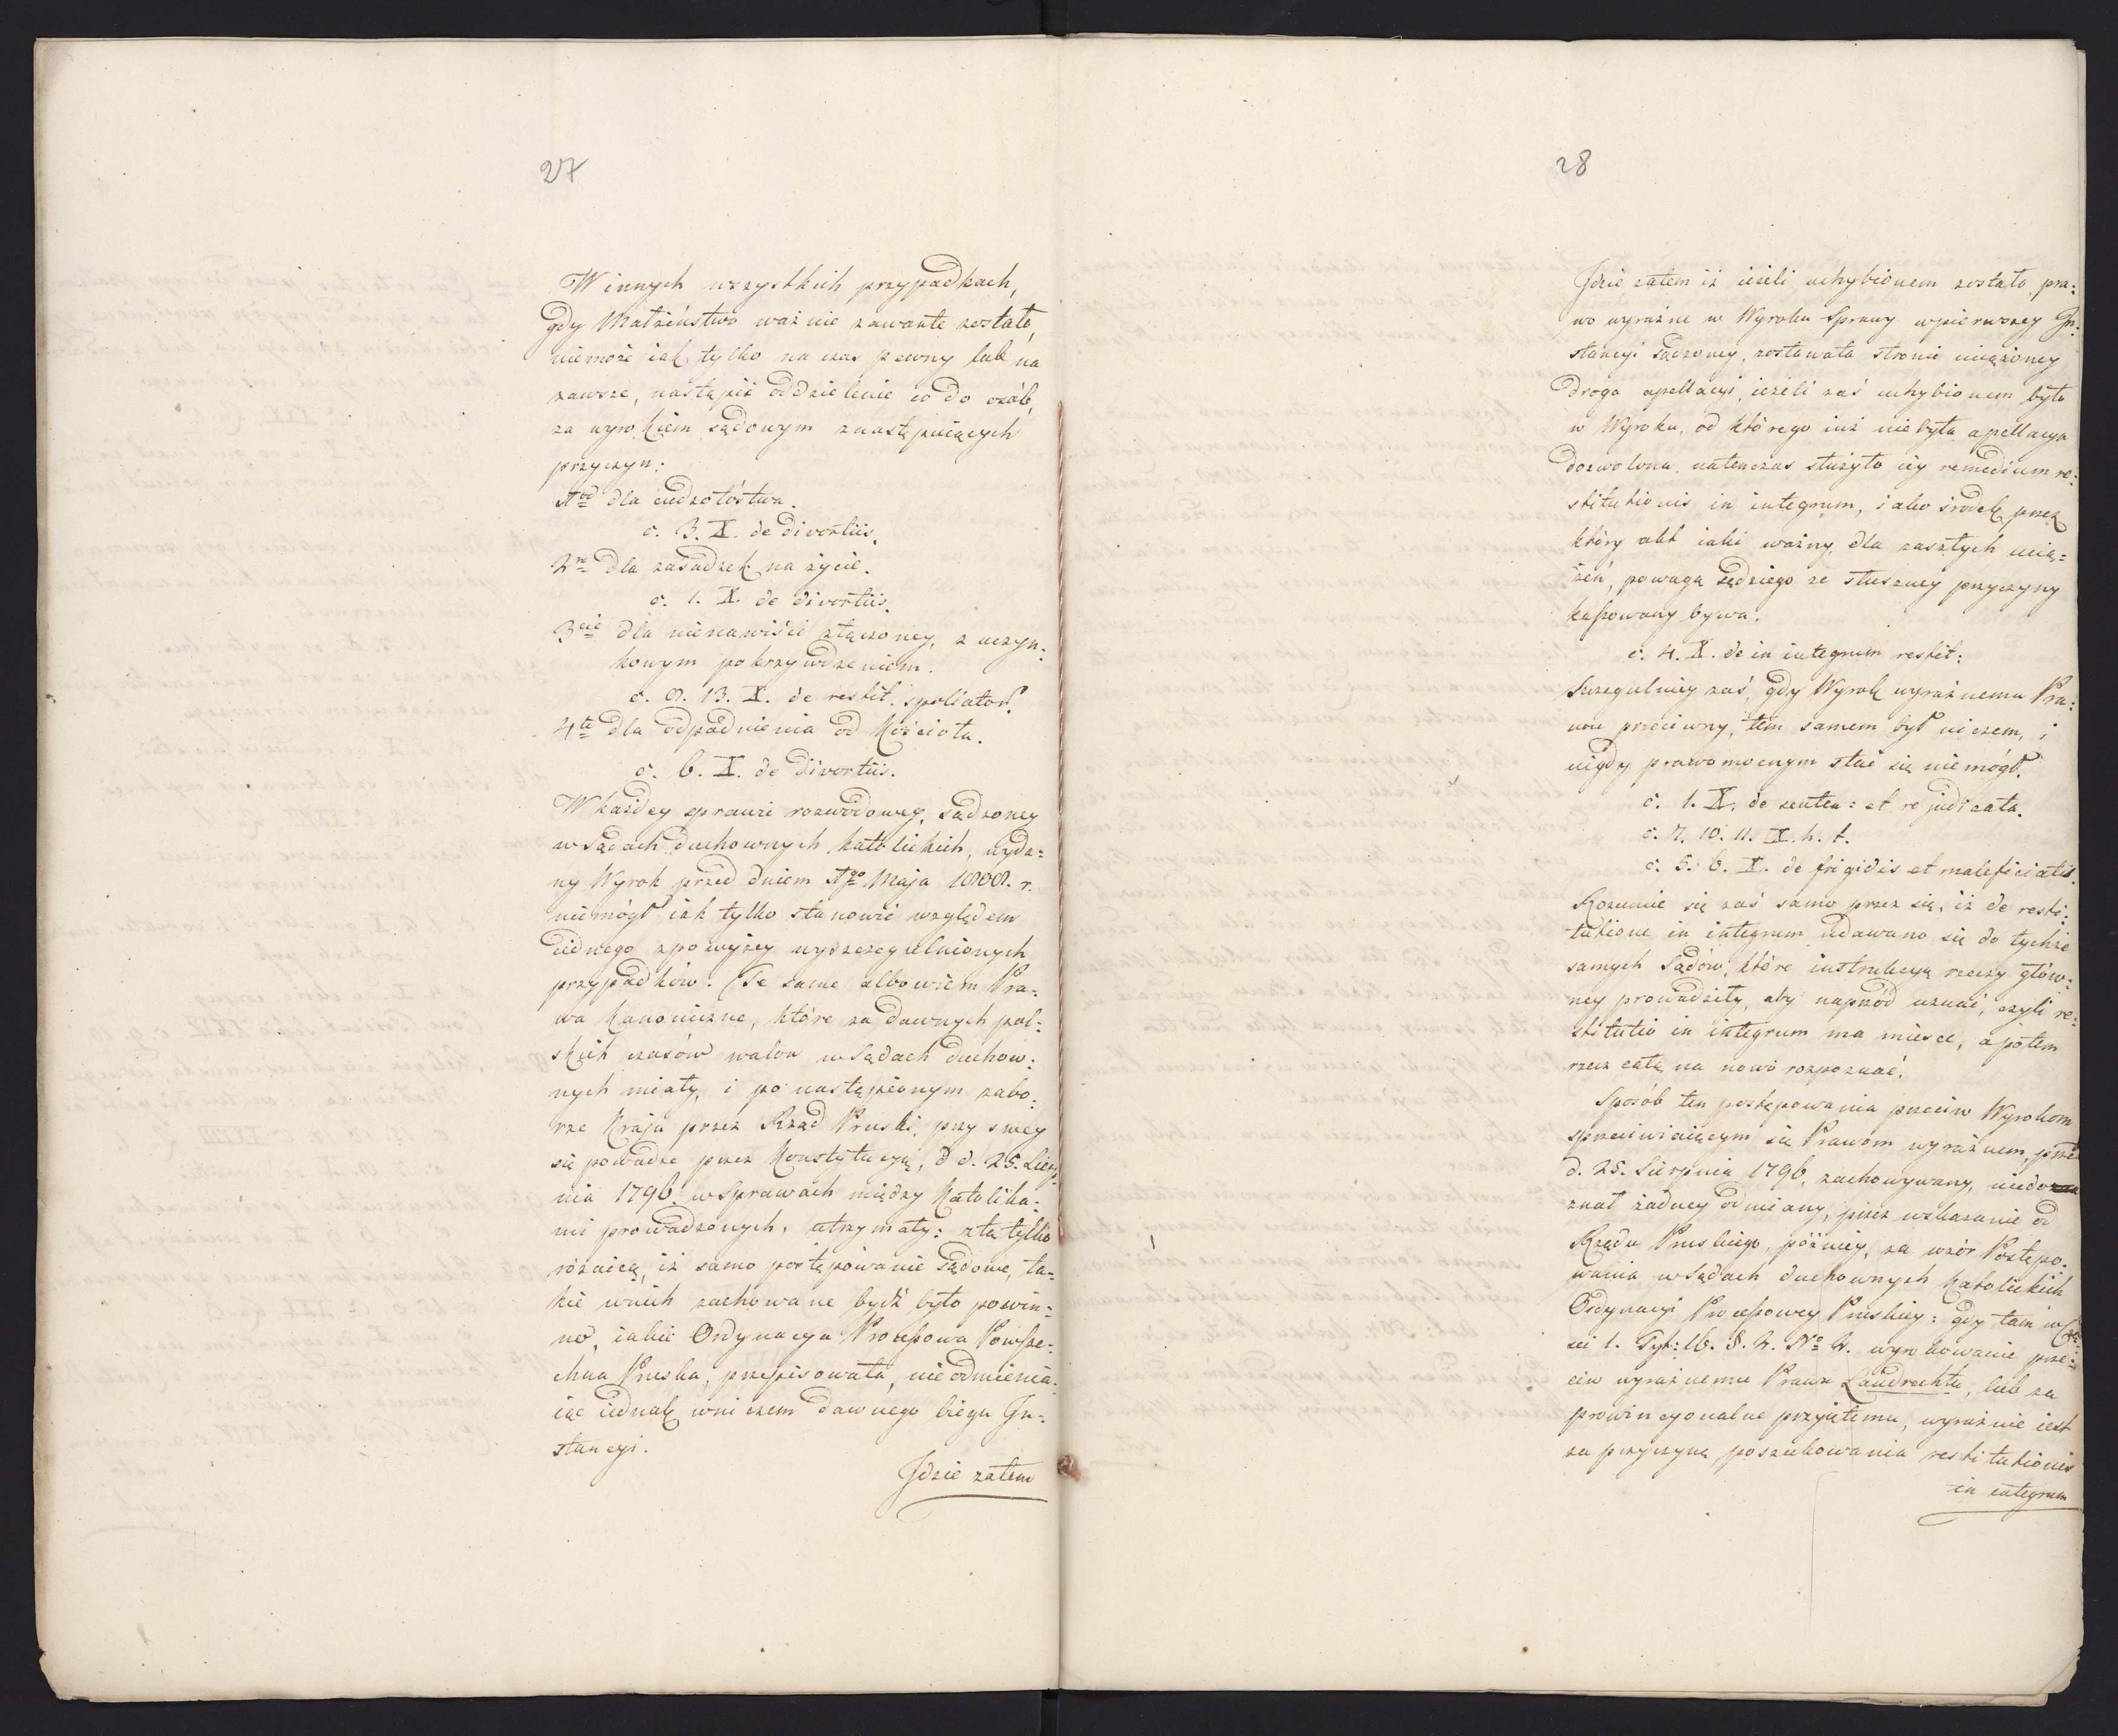 27
W innych wszystkich przypadkach,
gdy Małżeństwo ważnie zawarte zostało,
niemoże iak tylko na czas pewny lub na
zawsze, nastąpić oddzielenie co do osób,
za wyrokiem sądowym z następuiących
przyczyn:
1od dla cudzołóstwa.
c. 3. X. de divortiis.
2re dla zasadzek na życie.
c. 1. X. de divortiis.
3cie dla nienawiści złączoney, z uczyn:
kowym pokrzywdzeniem.
c. 8. 13. X. de restit. spoliator.
4te dla odpadnienia od Kościoła.
c. 6. X. de divortiis.
W każdey sprawie rozwodowey, sądzoney
w Sądach duchownych katolickich, wyda:
ny Wyrok przed dniem 1go Maja 1808. r.
niemógł iak tylko stanowić względem
iednego z powyżey wyszczególnionych
przypadków. Te same albowiem Pra:
wa Kanoniczne, które za dawnych pol:
skich czasów walor w Sądach duchow:
nych miały, i po nastąpionym zabo:
rze Kraju przez Rząd Pruski, przy swey
się powadze przez Konstytucyą, d d. 25. Sierp:
nia 1796. w Sprawach między Katolika:
mi prowadzonych, utrzymały: z tą tylko
różnicą, iż samo postępowanie Sądowe, ta:
kie w nich zachowane bydź było powin:
no, iakie Ordynacya Processowa Powsze:
chna Pruska, przepisowała, nieodmienia:
iąc iednak w niczem dawnego biegu In:
stancyi.
Idzie zatem
28
Idzie zatem iż ieżeli uchybionem zostało, pra:
wo wyraźne w Wyroku Sprawy w pierwszey In:
stancyi Sądzoney, zostawała stronie uciążoney
droga apellacyi, ieżeli zaś uchybionem było
w Wyroku, od którego iuż niebyła apellacya
dozwolona, natenczas służyło iey remedium re:
stitutionis in integrum, iako środek przez
który akt iaki ważny, dla zaszłych ucią:
żeń, powagą Sędziego ze słuszney przyczyny
kassowany bywa.
c. 4. X. de in integrum restit:
Szczegulniey zaś, gdy Wyrok wyraźnemu Pra:
wu przeciwny, tem samem był niczem, i
nigdy prawomocnym stać się niemógł.
c. 1. X. de senten: et re judicata.
c. 7. 10. 11. X. h. t.
c. 5. 6. X. de frigidis et maleficiatis.
Rozumie się zaś samo przez się, iż de resti:
tutione in integrum udawano się do tychże
samych Sądów, które instrukcyą rzeczy głów:
ney prowadziły, aby naprzód uznać, czyli re:
stitutio in integrum ma miesce, a potem
rzecz całą na nowo rozpoznać.
Sposób ten postępowania przeciw Wyrokom
sprzeciwiaiącym się Prawom wyraźnem, przed
d. 25. Sierpnia 1796, zachowywany, niedo
znał żadney odmiany, przez wskazanie od
Rządu Pruskiego, późniey, za wzór Postępo:
wania w Sądach duchownych Katolickich
Ordynacyi Processowey Pruskiey: gdy tam w Czę:
sci 1. Tyt: 16. §. 2. No 2. wyrokowanie prze:
ciw wyraźnemu Prawu Landrechtu, lub za
prowincyonalne przyiętemu, wyraźnie iest
za przyczynę poszukowania restitutionis
in integrum